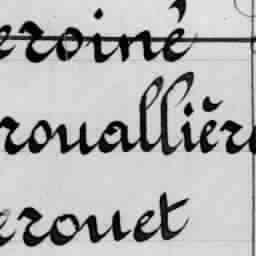 eroiné
rouallièr
erouet